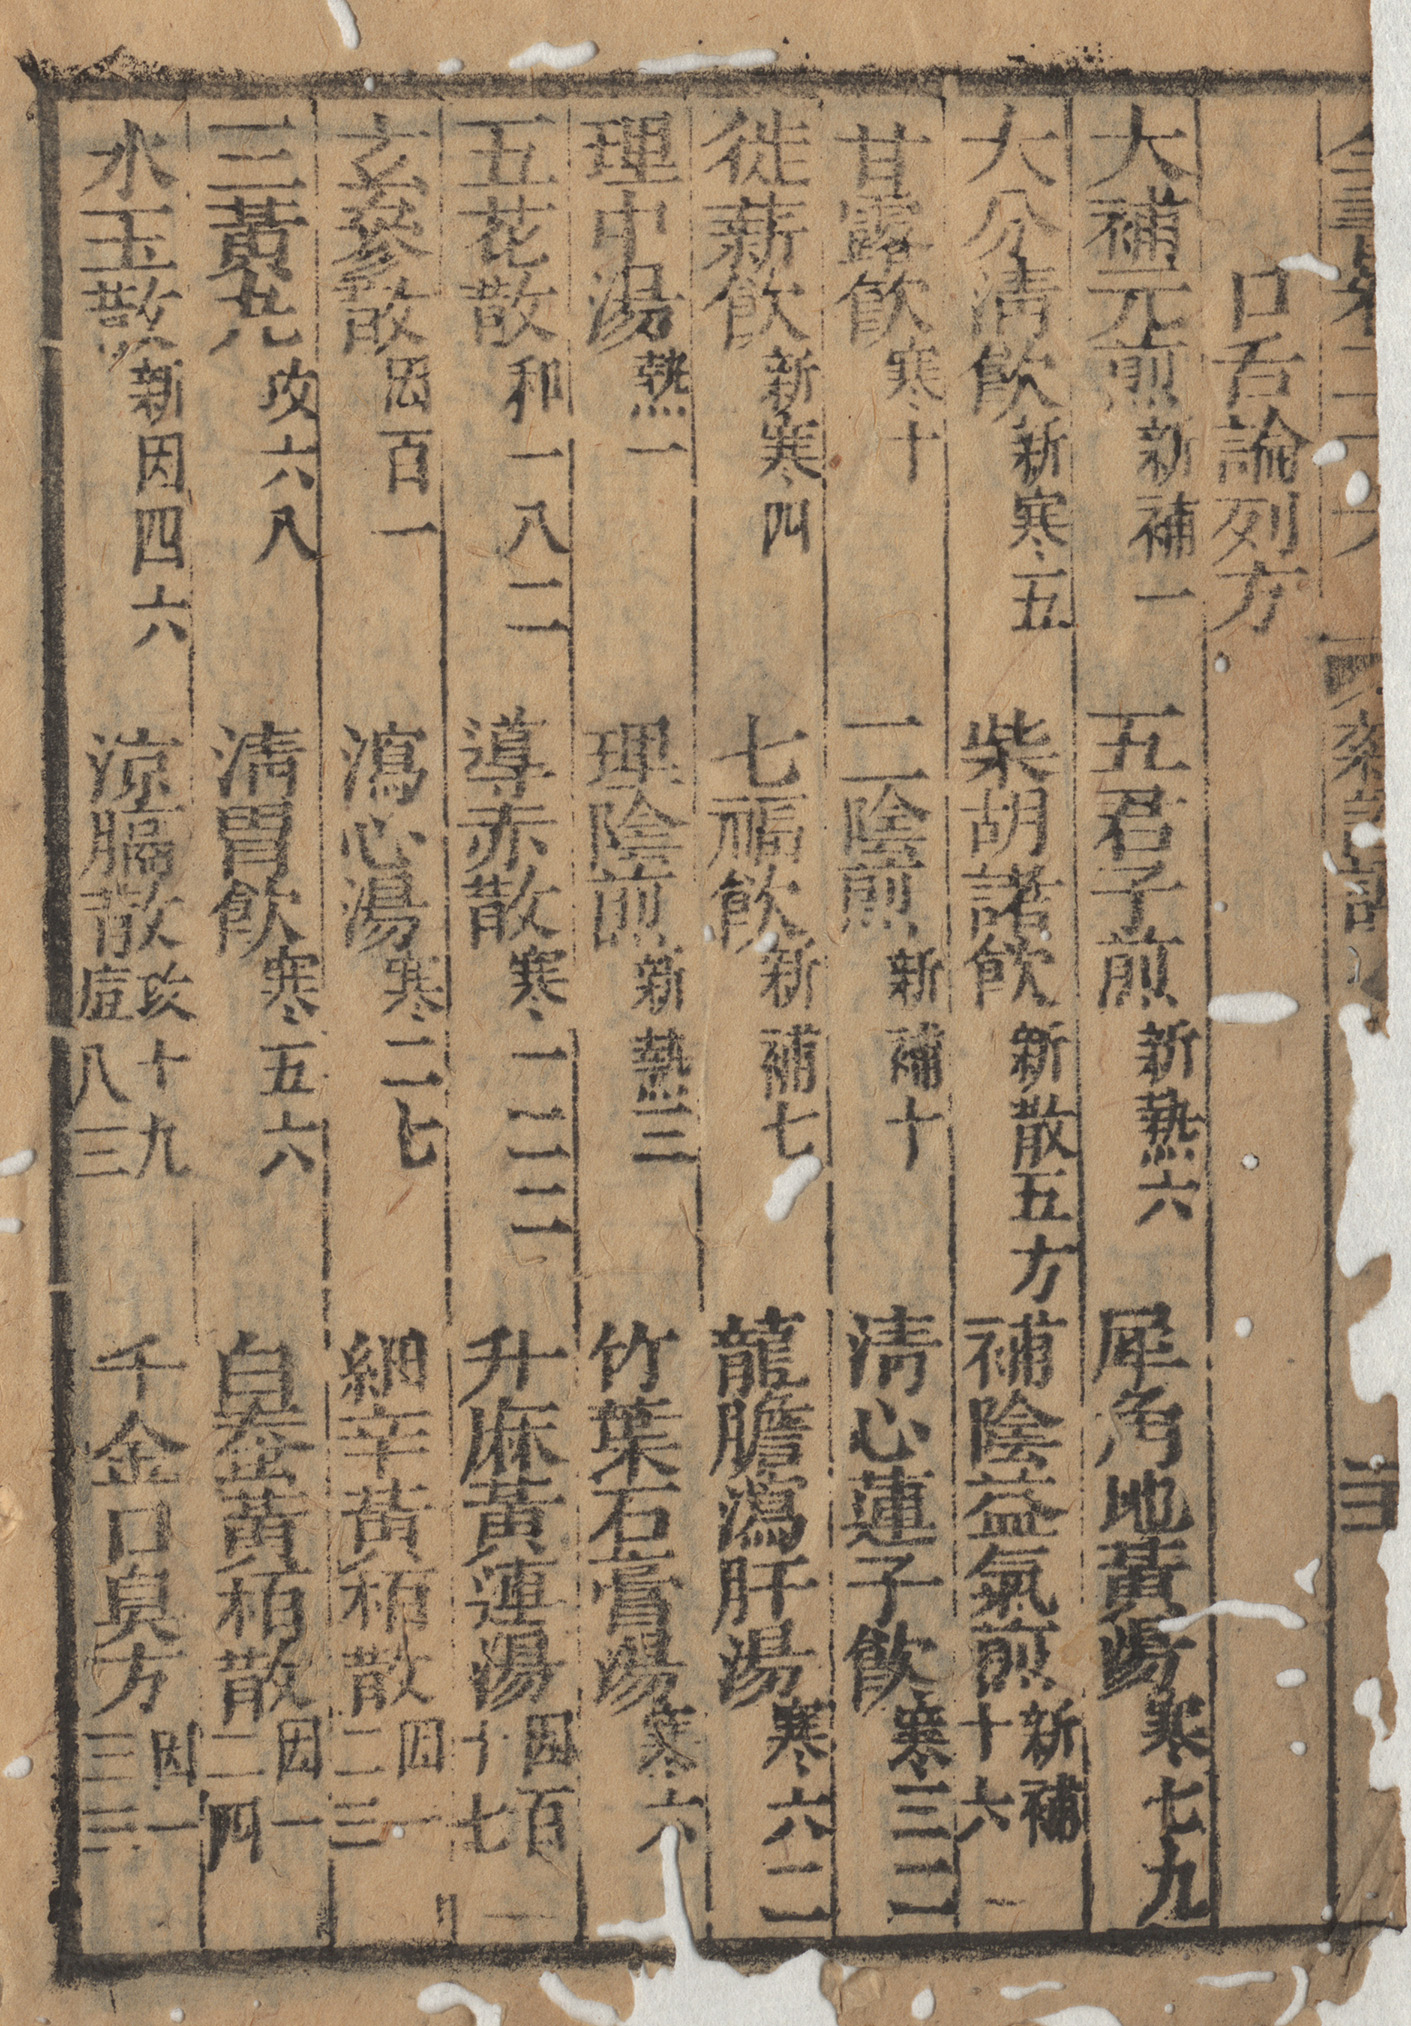 口舌論列方
大補元煎新補一 五君子煎新熱六 犀角地黃湯寒七九
大分清飲新寒五 柴胡諸飲新散五方 補陰益氣煎新補十六
甘露飲寒十 二陰煎新補十 清心蓮子飲寒三二
徙薪飲新寒四 七福飲新補七 龍膽瀉肝湯寒六二
理中湯熱一 理陰煎新熱三 竹葉石膏湯寒六
五花散和一八二 導赤散寒一二二 升麻黃連湯因百十七
玄參散因百一 瀉心湯寒二七 細辛黃栢散因一二三
三黃丸攻六八 清胃飲寒五六 白蚕黃栢散因一二四
水玉散新因四六 涼膈散攻十九痘八三 千金口臭方因一三三